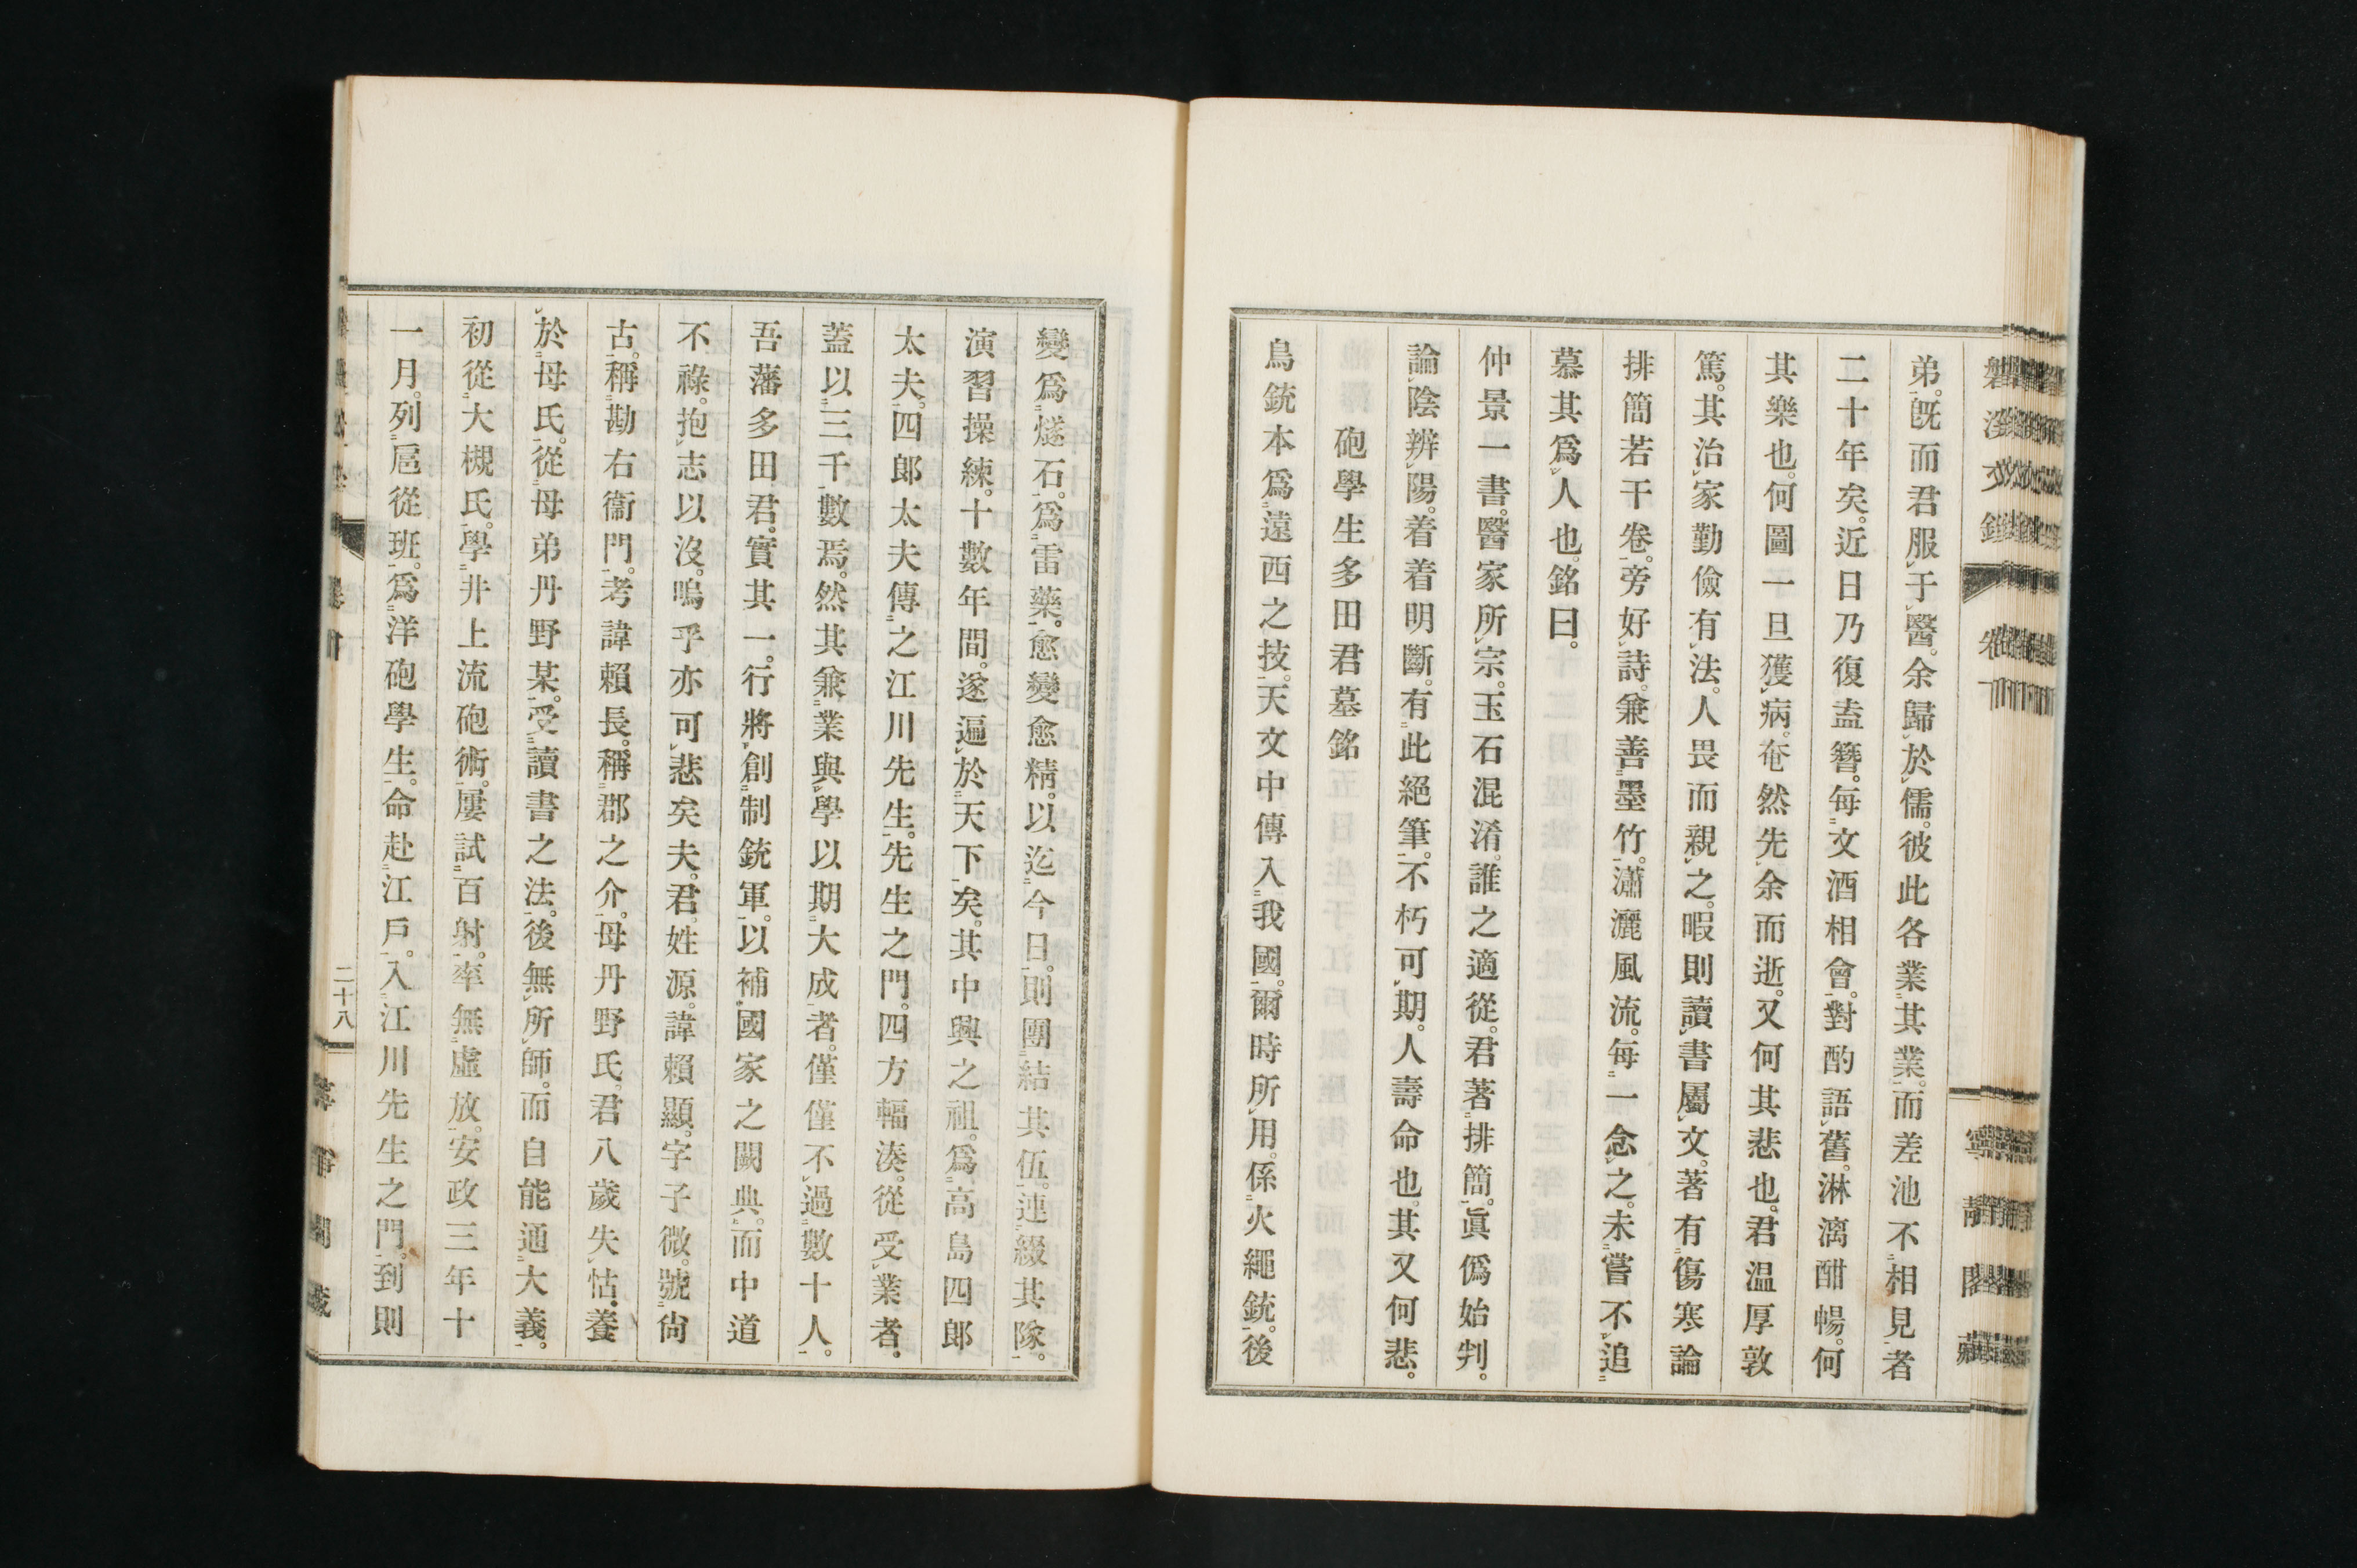 弟。既而君服于醫。余歸於儒。彼此各業其業。而差池不相見者
二十年矣。近日乃復盍簪。每文酒相會。對酌語舊。淋漓酣暢。何
其樂也。何圖一旦獲病。奄然先余而逝。又何其悲也。君温厚敦
篤。其治家勤儉有法。人畏而親之。暇則讀書屬文。著有傷寒論
排簡若干卷。旁好詩。兼善墨竹。瀟灑風流。每一念之。未嘗不追
慕其爲人也。銘曰。
仲景一書。醫家所宗。玉石混淆。誰之適從。君著排簡。眞僞始判。
論陰辨陽。着着明斷。有此絕筆。不朽可期。人壽命也。其又何悲。
砲學生多田君墓銘
鳥銃本爲遠西之技。天文中傳入我國。爾時所用。係火繩銃。後
變爲燧石。爲雷藥。愈變愈精。以迄今日。則團結其伍。連綴其隊。
演習操練。十數年間。遂遍於天下矣。其中興之祖。爲高島四郎
太夫。四郎太夫傳之江川先生。先生之門。四方輻湊。從受業者。
蓋以三千數焉。然其兼業與學以期大成者。僅僅不過數十人。
吾藩多田君。實其一。行將創制銃軍。以補國家之闕典。而中道
不祿。抱志以沒。嗚乎亦可悲矣夫。君姓源。諱賴顯。字子微。號尙
古。稱勘右衞門。考諱賴長。稱郡之介。母丹野氏。君八歲失怙。養
於母氏。從母弟丹野某。受讀書之法。後無所師。而自能通大義。
初從大槻氏。學井上流砲術。屢試百射。率無虛放。安政三年十
一月。列扈從班。爲洋砲學生。命赴江戶。入江川先生之門。到則
二十八